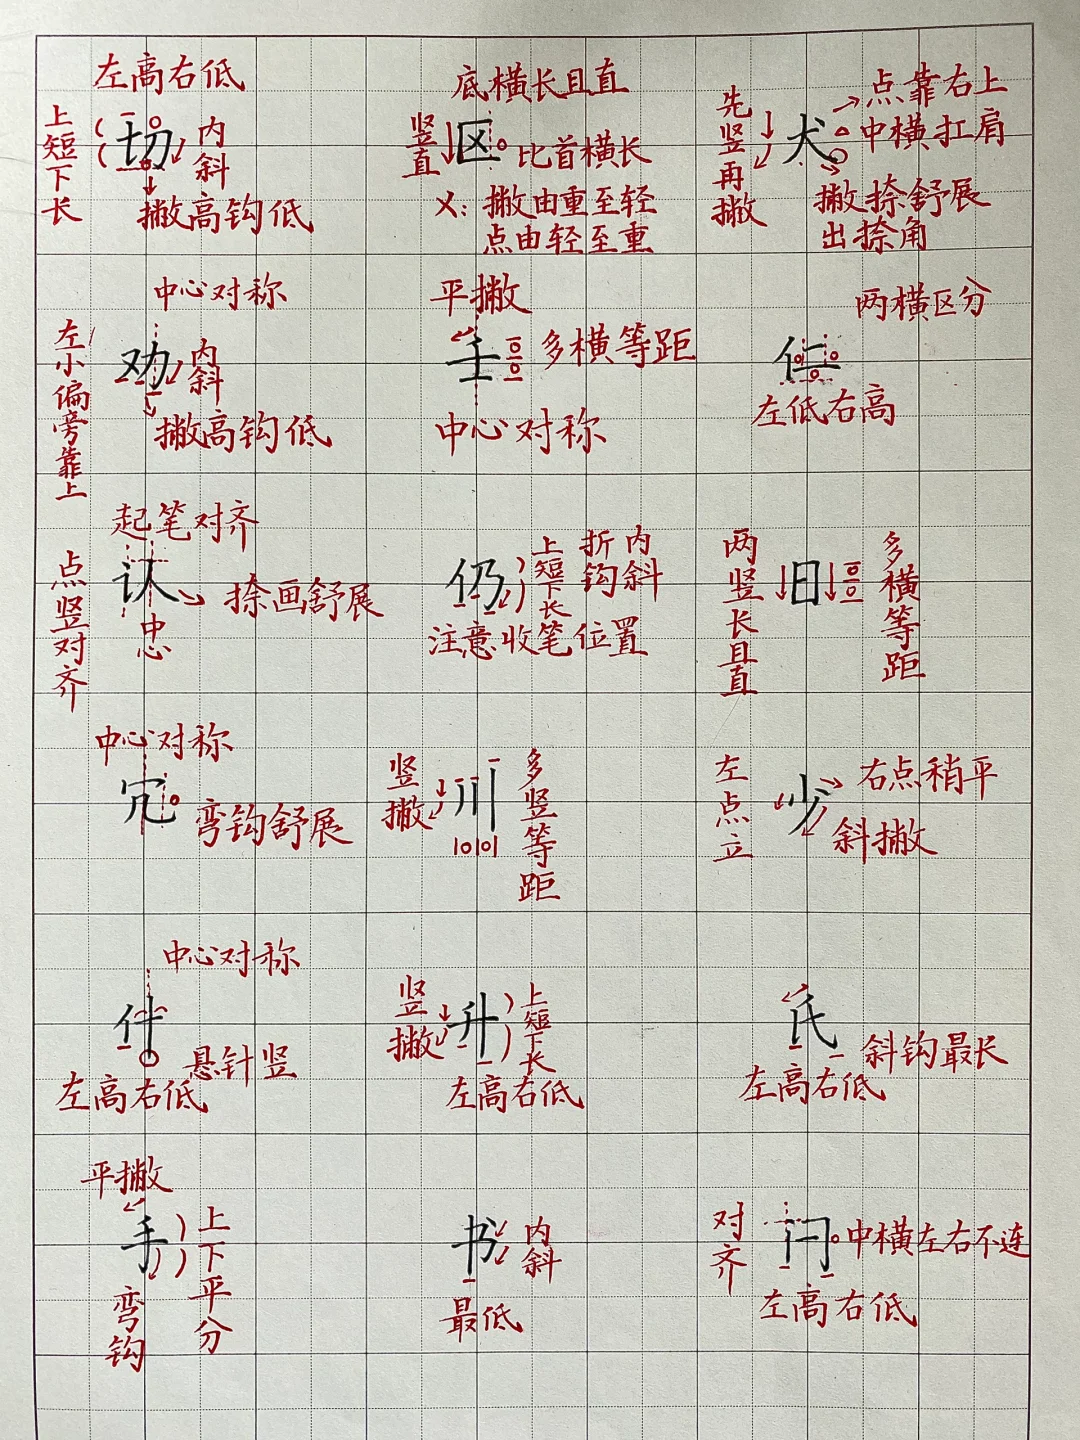 左高右低
上短下长
切
内斜
撇高钩低
底横长且直
竖直
区
比首横长
乂：撇由重至轻
点由轻至重
先竖再撇
犬
点靠右上
中横扛肩
撇捺舒展
出捺角
中心对称
左小偏旁靠上
劝
内斜
撇高钩低
平撇
壬
多横等距
中心对称
两横区分
仁
左低右高
起笔对齐
点竖对齐
认
捺画舒展
中心
仍
上短下长
折内
钩斜
注意收笔位置
两竖长且直
旧
多横等距
中心对称
冗
弯钩舒展
竖撇
川
多竖等距
左点立
少
右点稍平
斜撇
中心对称
什
悬针竖
左高右低
竖撇
升
上短下长
左高右低
氏
斜钩最长
左高右低
平撇
手
上下平分
弯钩
书
内斜
最低
对齐
闩
中横左右不连
左高右低